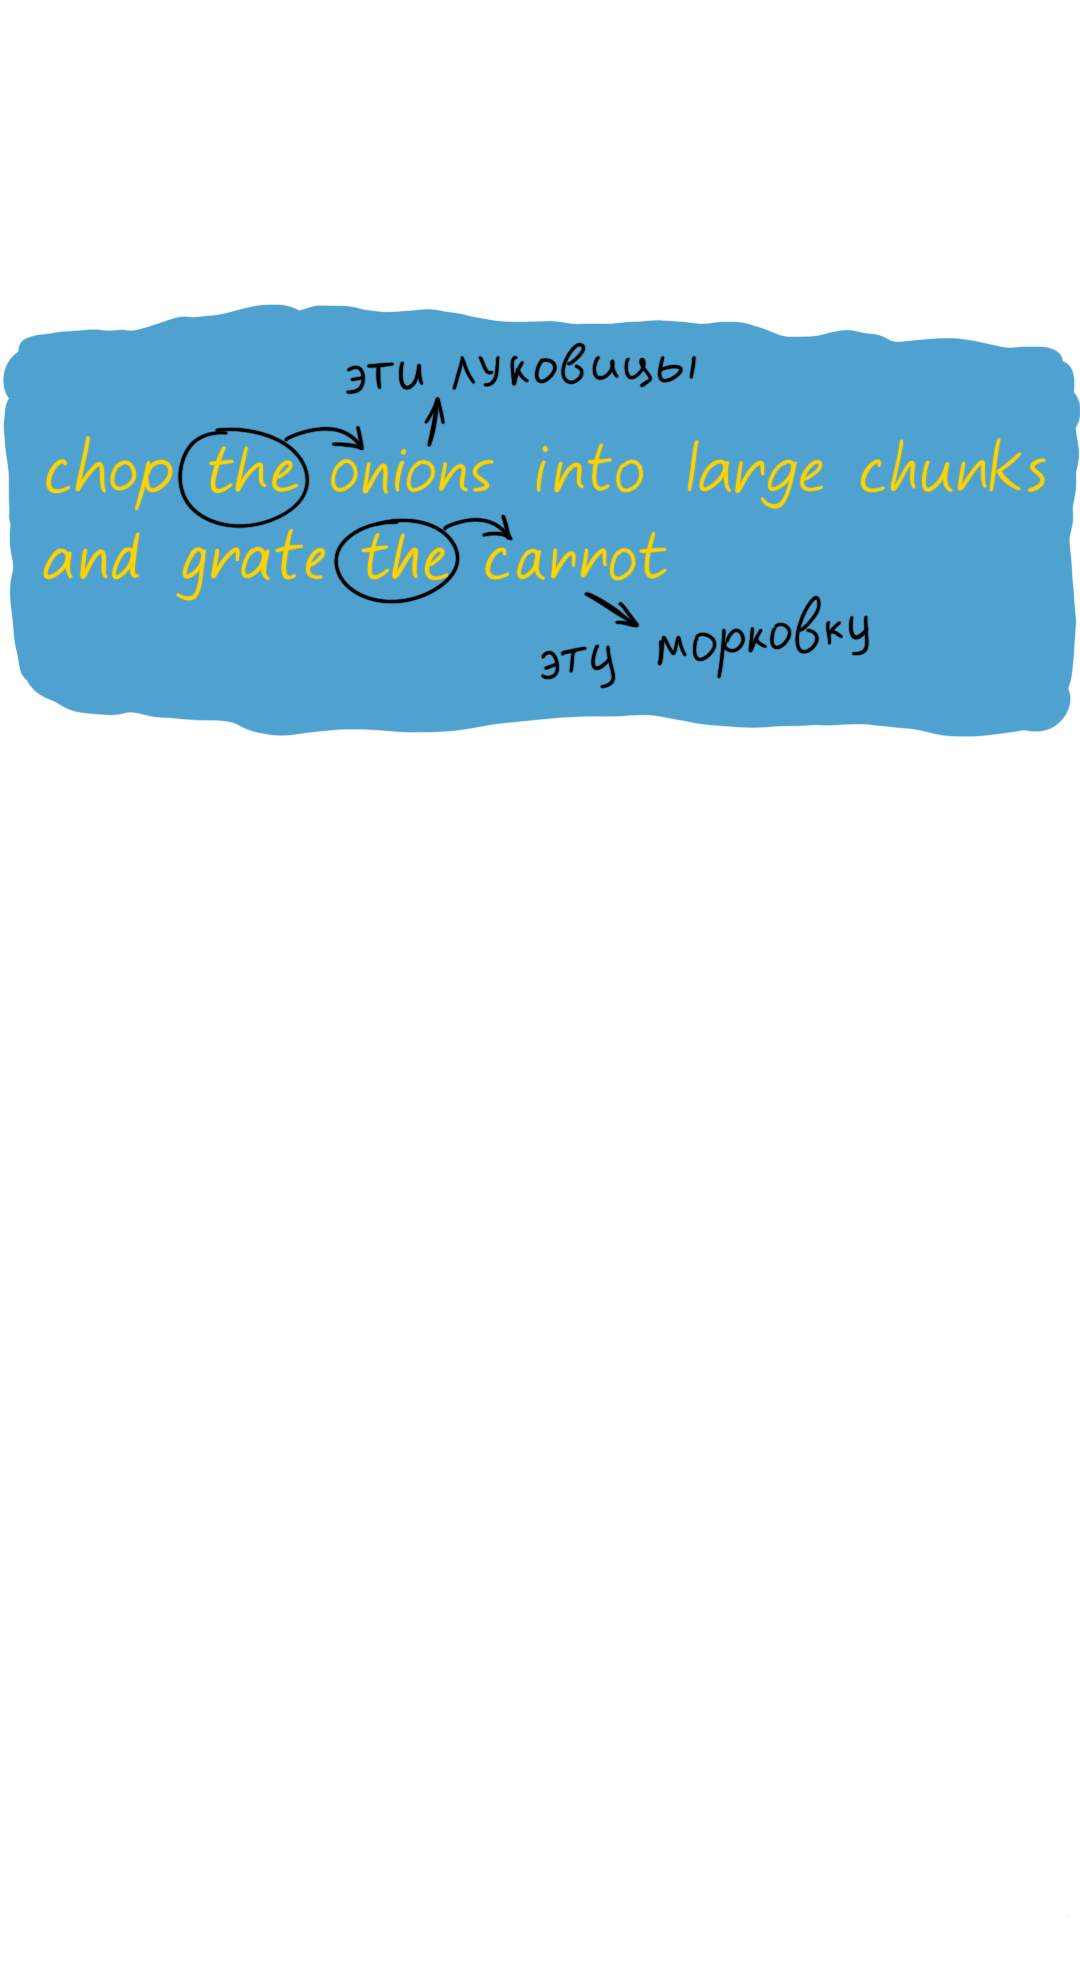 эти луковицы
chop the onions into large chunks
and grate the carrot
эту морковку